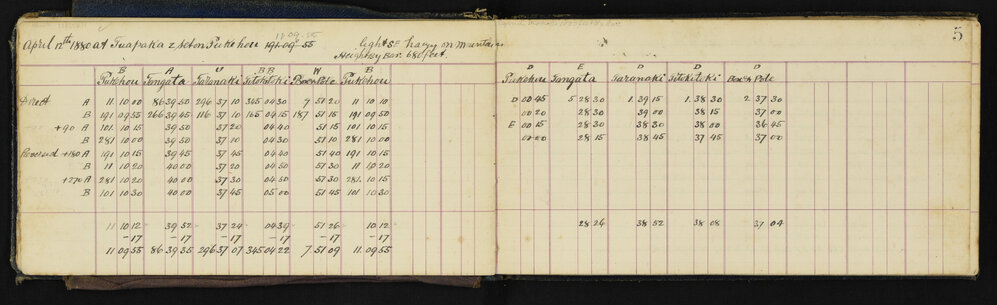 11·09·55
April 12th 1880 at Tuapaka z set on Pukehou 191·09·55 light SE hazy on mountains
Height by Bar. 680 feet.
5
B A U BB W B
Pukehou Tongata Taranaki Titokitoki Box & Pole Pukehou
Direct A 11 10 00 86 39 50 296 37 10 345 04 30 7 51 20 11 10 10
B 191 09 55 266 39 45 116 37 10 165 04 15 187 51 15 191 09 50
+90 A 101 10 15 39 50 37 20 04 40 51 15 101 10 15
B 281 10 00 39 50 37 10 04 30 51 10 281 10 00
Reversed +180 A 191 10 15 39 45 37 45 04 40 51 40 191 10 15
B 11 10 20 40 00 37 20 04 50 51 30 11 10 20
+270 A 281 10 20 40 00 37 30 04 50 51 30 281 10 15
B 101 10 30 40 00 37 45 05 00 51 45 101 10 30
11 10 12 39 52 37 24 04 39 51 26 10 12
-17 -17 -17 -17 -17 -17
11 09 55 86 39 35 296 37 07 345 04 22 7 51 09 11 09 55
D E D D D
Pukehou Tongata Taranaki Titokitoki Box & Pole
D 00 45 5 28 30 1 39 15 1 38 30 2 37 30
00 20 28 30 39 00 38 15 37 00
E 00 15 28 30 38 30 38 00 36 45
00 00 28 15 38 45 37 45 37 00
28 26 38 52 38 08 37 04